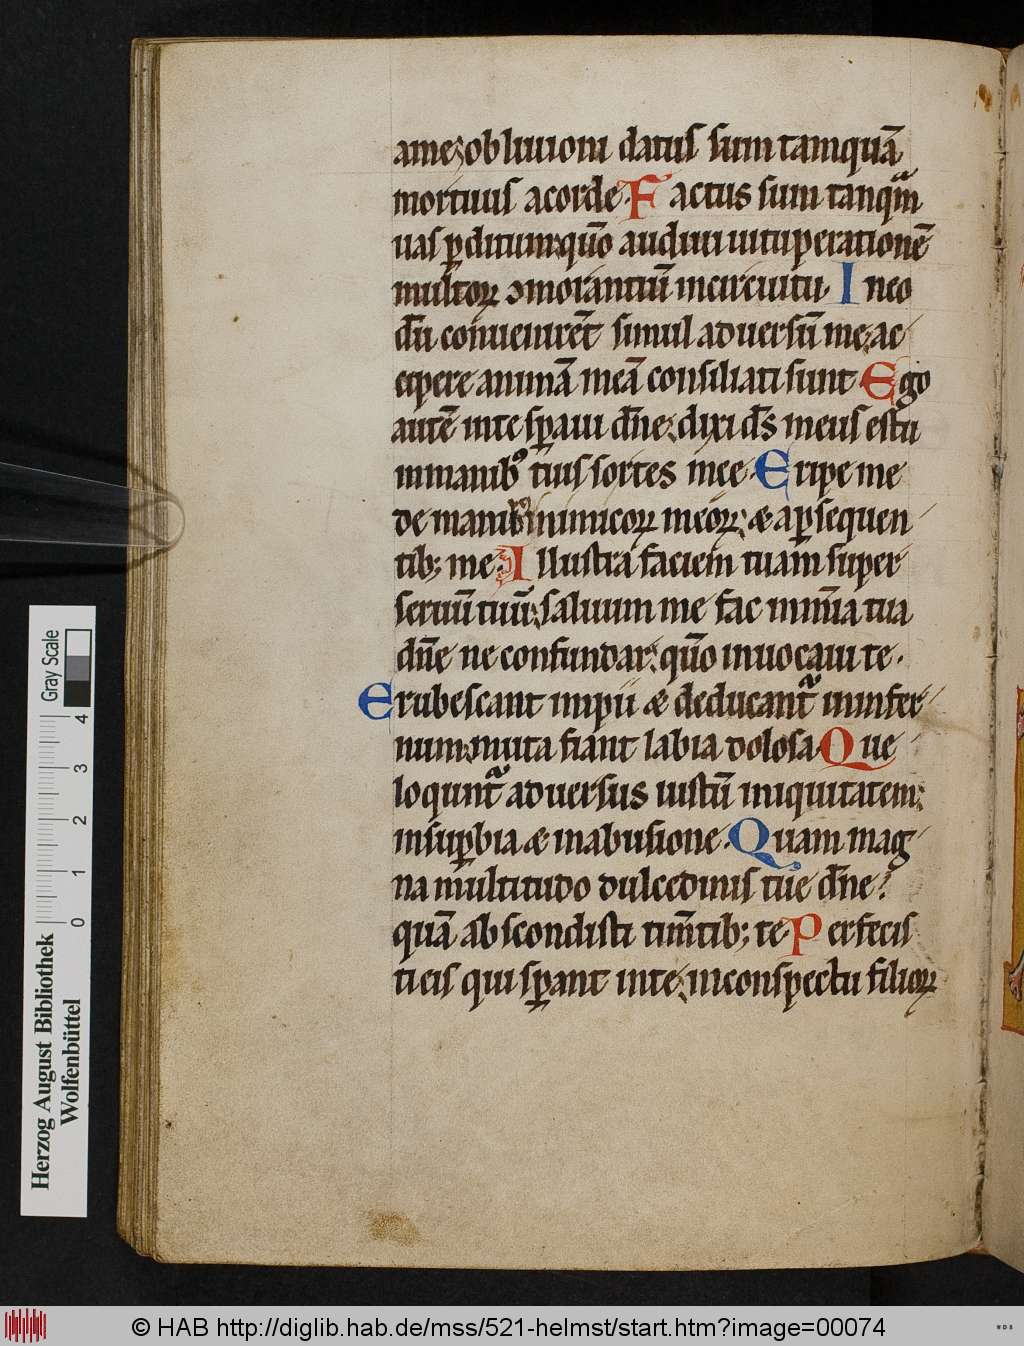 ame; obliuioni datus sum tamquā
mortuus acorde. Factus sum tanqm̄
uas p̄ditum; quō audiui uituperationē
multoꝝ ↄmorantiū incircuitu. Ineo
dū conuenirēt simul aduersū me; ac
cipere animā meā consiliati sunt. Ego
autē inte sp̄aui dn̄e; dixi ds̄ meus es tu
inmanibꝰ tuis sortes mee. Eripe me
de manibꝰ inimicoꝝ meoꝝ; & apsequen
tib; me. Illustra faciem tuam super
seruū tuū; saluum me fac inmīa tua
dn̄e ne confundar; quō inuocaui te.
Erubescant impii & deducant᷑ ininfer
num; muta fiant labia dolosa. Que
loqunt᷑ aduersus iustū iniquitatem;
insuꝑbia & inabusione. Quam mag
na multitudo dulcedinis tue dn̄e;
quā abscondisti tim̄tib; te. Perfecis
ti eis qui sꝑant inte; inconspectu filioꝝ
Herzog August Bibliothek
Wolfenbüttel
0 1 2 3 4
Gray Scale
© HAB http://diglib.hab.de/mss/521-helmst/start.htm?image=00074